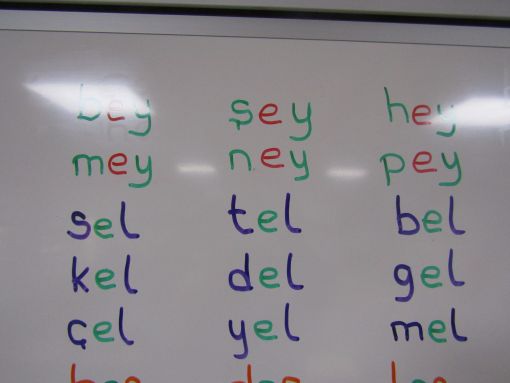 bey şey hey
mey ney pey
sel tel bel
kel del gel
çel yel mel